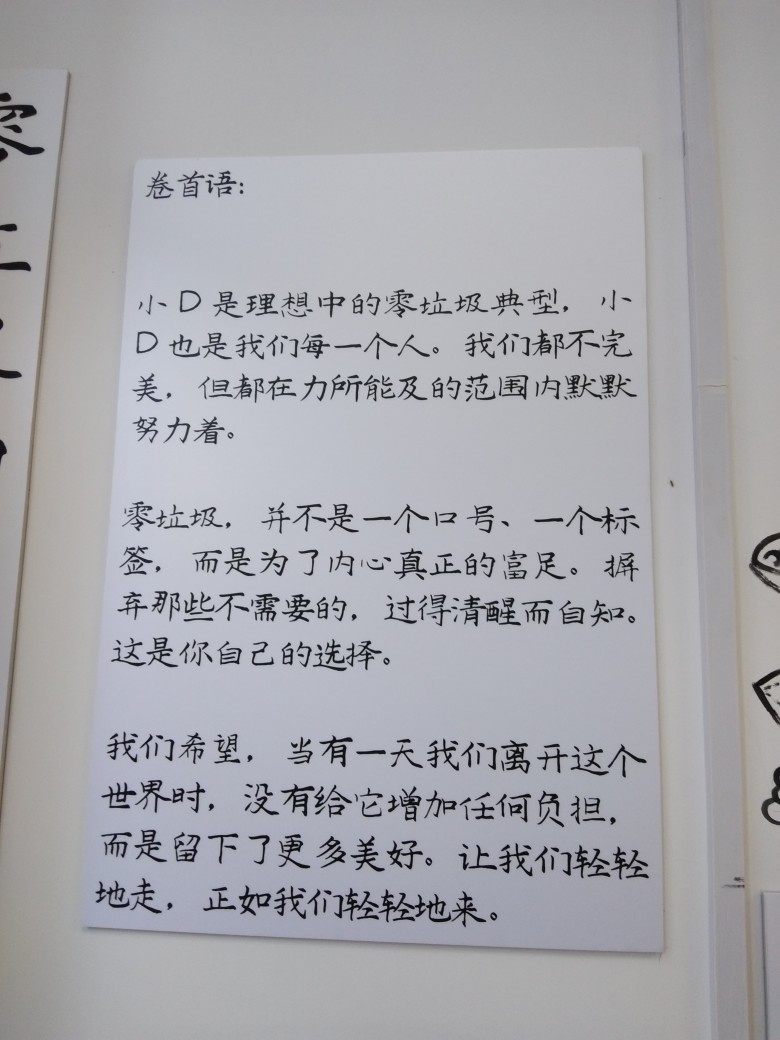 卷首语:
小D是理想中的零垃圾典型，小
D也是我们每一个人。我们都不完
美，但都在力所能及的范围内默默
努力着。
零垃圾，并不是一个口号、一个标
签，而是为了内心真正的富足。摒
弃那些不需要的，过得清醒而自知。
这是你自己的选择。
我们希望，当有一天我们离开这个
世界时，没有给它增加任何负担，
而是留下了更多美好。让我们轻轻
地走，正如我们轻轻地来。
零